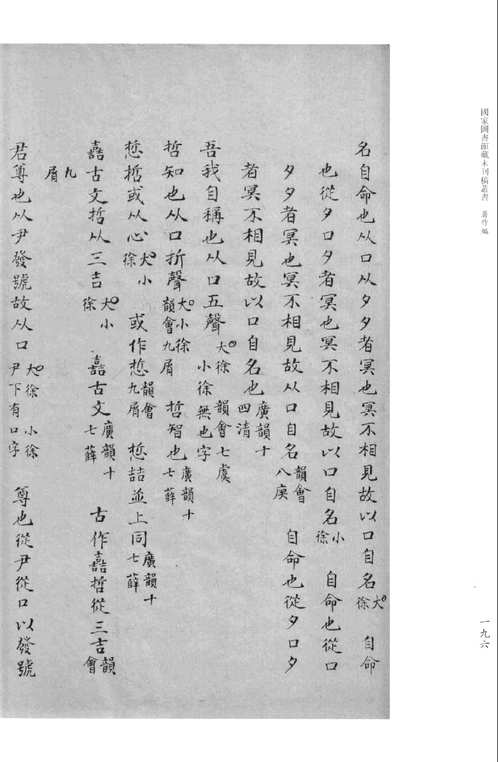 國家圖書館藏未刊稿叢書 著作編
一九六
名自命也从口从夕夕者冥也冥不相見故以口自名大徐 自命
也從夕口夕者冥也冥不相見故以口自名小徐 自命也從口
夕夕者冥也冥不相見故从口自名韻會八庚 自命也從夕口夕
者冥不相見故以口自名也廣韻十四清
吾我自稱也从口五聲大徐小徐無也字 韻會七虞
哲知也从口折聲大小徐韻會九屑 哲智也廣韻十七薛
悊哲或从心大小徐 或作悊韻會九屑 悊喆並上同廣韻十七薛
嚞古文哲从三吉大小徐 嚞古文廣韻十七薛 古作嚞哲從三吉韻會
九屑
君尊也从尹發號故从口大徐 小徐尹下有口字 尊也從尹從口以發號